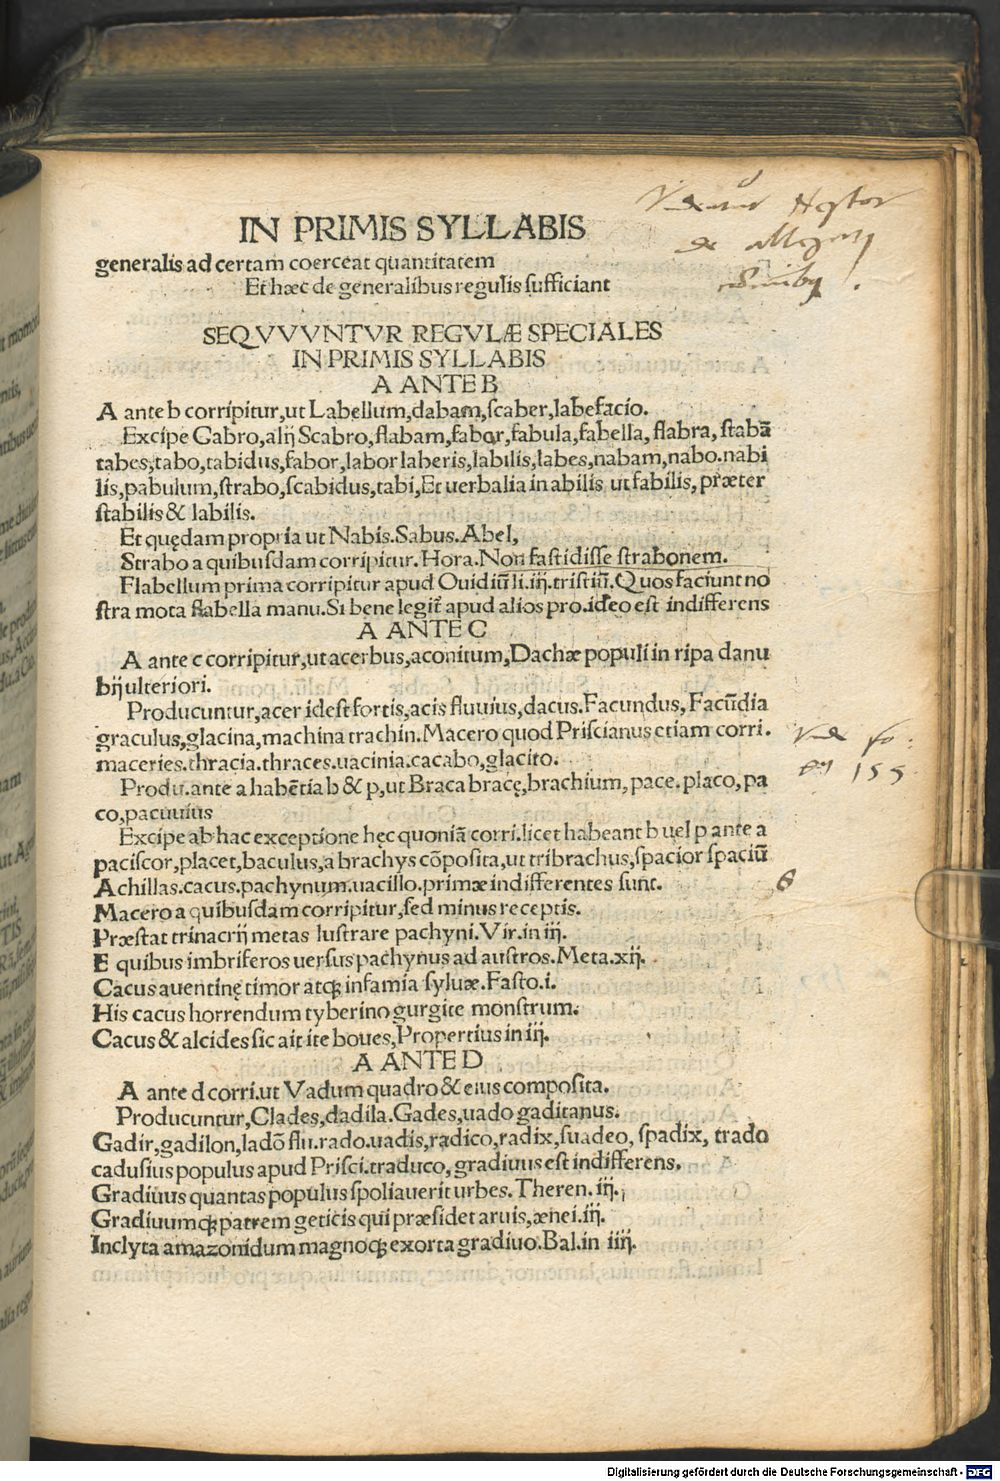 IN PRIMIS SYLLABIS
generalis ad certam coerceat quantitatem
Et hæc de generalibus regulis ſufficiant
SEQVVVNTVR REGVLÆ SPECIALES
IN PRIMIS SYLLABIS
A ANTE B
A ante b corripitur,ut Labellum,dabam,ſcaber,labefacio.
Excipe Gabro,alij Scabro,flabam,fabor,fabula,fabella, flabra, ſtabā
tabes,tabo,tabidus,fabor,labor laberis,labilis,labes,nabam,nabo.nabi
lis,pabulum,ſtrabo,ſcabidus,tabi,Et uerbalia in abilis ut fabilis, præter
ſtabilis & labilis.
Et quędam propria ut Nabis.Sabus.Abel,
Strabo a quibuſdam corripitur. Hora.Non faſtidiſſe ſtrabonem.
Flabellum prima corripitur apud Ouidiū li.iij.triſtiū.Quos faciunt no
ſtra mota flabella manu.Si bene legit̄ apud alios pro.ideo eſt indifferens
A ANTE C
A ante c corripitur,ut acerbus,aconitum,Dachæ populi in ripa danu
bij ulteriori.
Producuntur,acer ideſt fortis,acis fluuius,dacus.Facundus, Facūdia
graculus,glacina,machina trachin.Macero quod Priſcianus etiam corri.
maceries.thracia.thraces.uacinia.cacabo,glacito.
Produ.ante a habētia b & p,ut Braca bracę,brachium, pace. placo, pa
co,pacuuius
Excipe ab hac exceptione hęc quoniā corri.licet habeant b uel p ante a
paciſcor,placet,baculus,a brachys cōpoſita,ut tribrachus,ſpacior ſpaciū
Achillas.cacus.pachynum.uacillo.primæ indifferentes ſunt.
6
Macero a quibuſdam corripitur,ſed minus receptis.
Præſtat trinacrij metas luſtrare pachyni.Vir.in iij.
E quibus imbriferos uerſus pachynus ad auſtros.Meta.xij.
Cacus auentinę timor atq; infamia ſyluæ.Faſto.i.
His cacus horrendum tyberino gurgite monſtrum.
Cacus & alcides ſic ait ite boues,Propertius in iij.
A ANTE D
A ante d corri.ut Vadum quadro & eius compoſita.
Producuntur,Clades,dadila.Gades,uado gaditanus.
Gadir,gadilon,ladō flu.rado.uadis,radico,radix,ſuadeo, ſpadix, trado
caduſius populus apud Priſci.traduco, gradiuus eſt indifferens.
Gradiuus quantas populus ſpoliauerit urbes. Theren. iij.
Gradiuumq; patrem geticis qui præſidet aruis,ænei.iij.
Inclyta amazonidum magnoq; exorta gradiuo.Bal.in iiij.
155
Digitalisierung gefördert durch die Deutsche Forschungsgemeinschaft - DFG